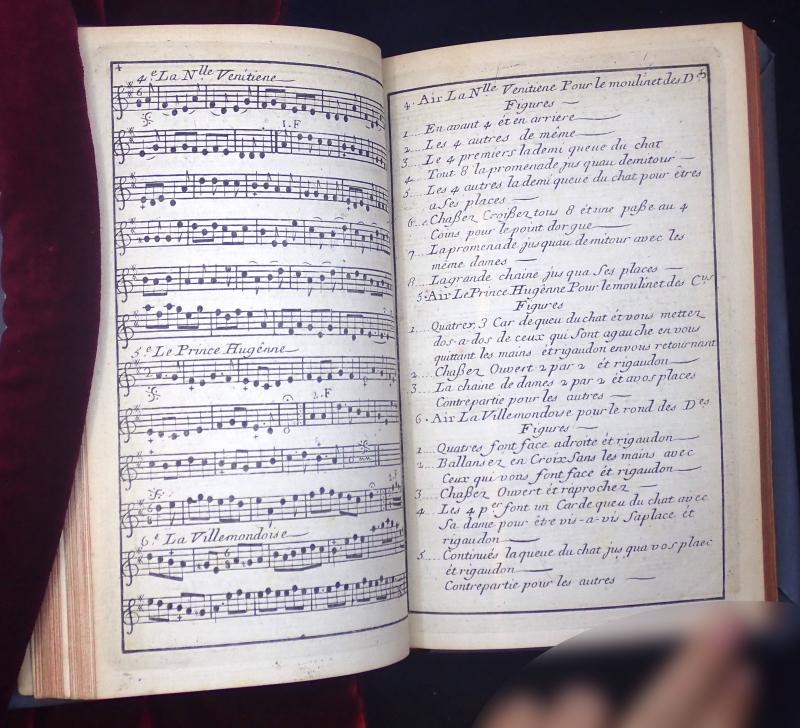 4
4.e La Nlle Venitiene
1.F
5.e Le Prince Hugênne
2.F
6.e La Villemondoise
5
4. Air La Nlle Venitiene Pour le moulinet des Des
Figures
1... En avant 4 ét en arriere
2... Les 4 autres de même
3... Le 4 premiers la demi queue du chat
4... Tout 8 la promenade jus quau demitour
5... Les 4 autres la demi queue du chat pour êtres
a Ses places
6... Chaßez Croißez tous 8 ét une paße au 4
Coins pour le point dorgue
7... La promenade jusquau demitour avec les
même dames
8... La grande chaine jus qua Ses places
5. Air Le Prince Hugênne Pour le moulinet des Crs
Figures
1... Quatres, 3 Car de queu du chat ét vous mettez
dos-a-dos de ceux qui Sont agauche en vous
quittant les mains ét rigaudon en vous retournant
2... Chaßez Ouvert 2 par 2 ét rigaudon
3... La chaine de dames 2 par 2 ét avos places
Contrepartie pour les autres
6. Air La Villemondoise pour le rond des Des
Figures
1... Quatres font face adroite ét rigaudon
2... Ballansez en Croix Sans les mains avec
Ceux qui vons font face ét rigaudon
3... Chaßez Ouvert ét raprochez
4... Les 4 per font un Car de queu du chat avec
Sa dame pour être vis-a-vis Saplace ét
rigaudon
5... Continués la queue du chat jus qua vos plaec
ét rigaudon
Contrepartie pour les autres